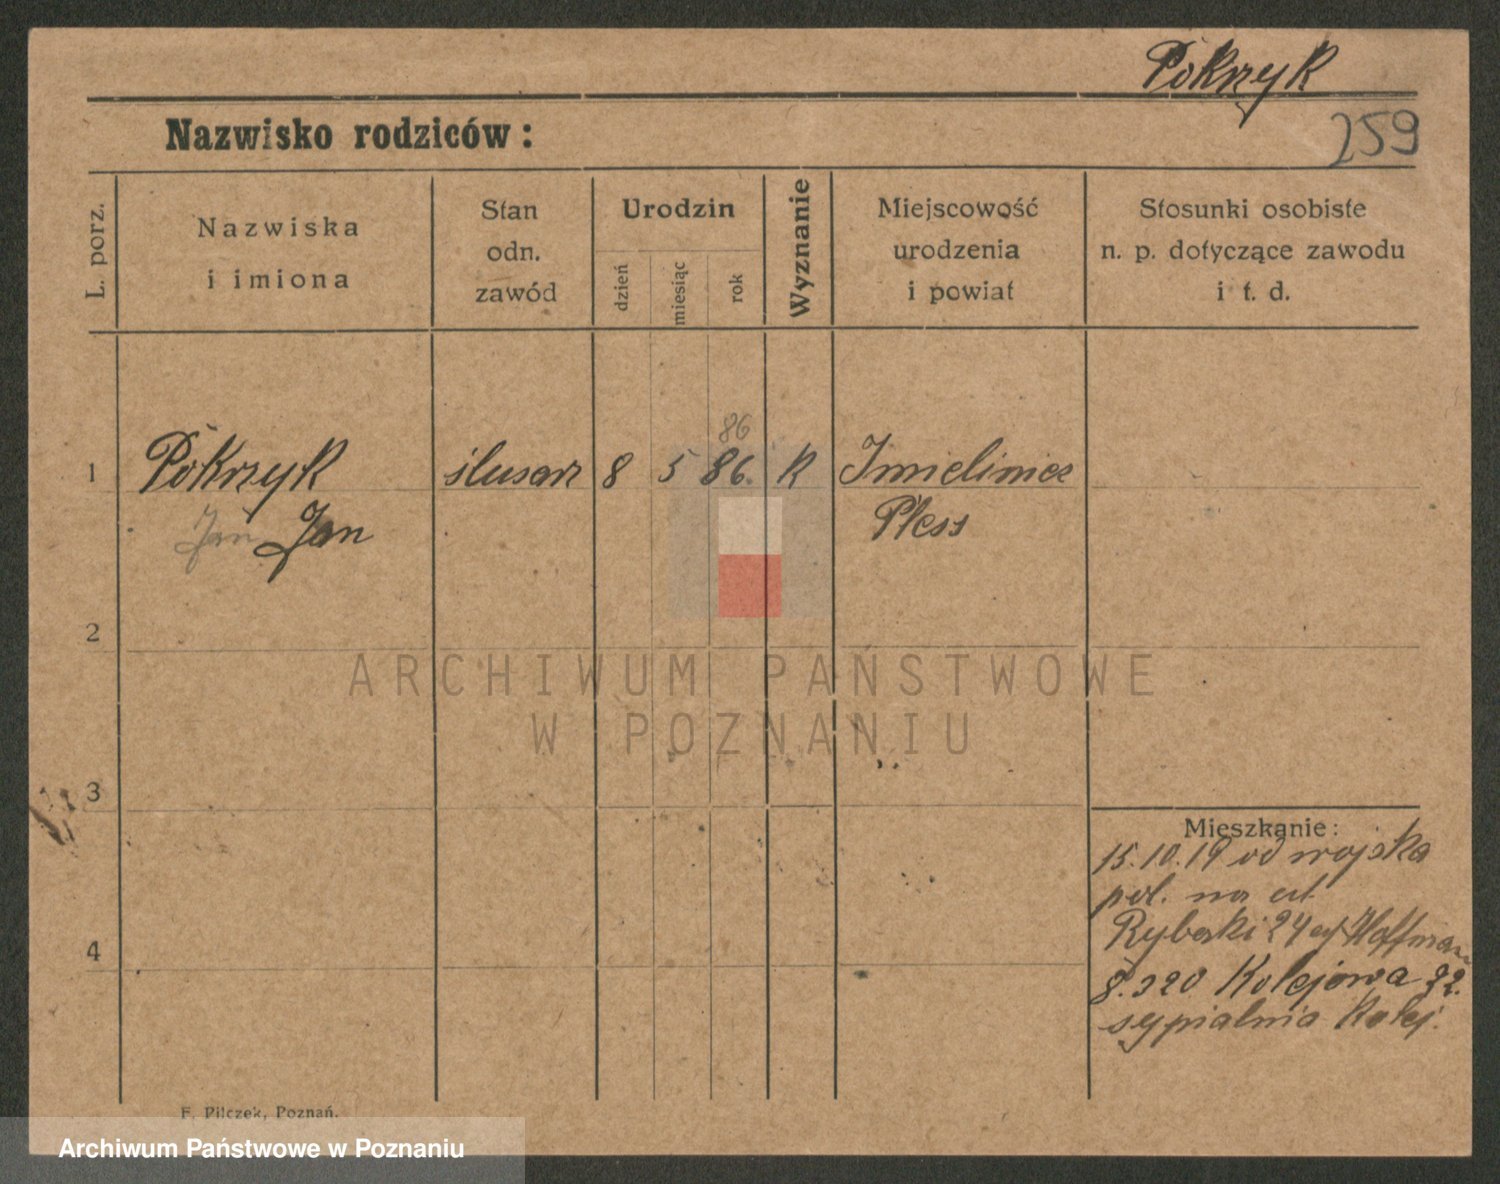 Pokrzyk
259
Nazwisko rodziców:
L. porz.
Nazwiska
i imiona
Stan
odn.
zawód
Urodzin
dzień
miesiąc
rok
Wyznanie
Miejscowość
urodzenia
i powiat
Stosunki osobiste
n. p. dotyczące zawodu
i t. d.
86
1 Pokrzyk ślusarz 8 5 86. k Imieliniec
Jan Jan Pless
2
ARCHIWUM PAŃSTWOWE
W POZNANIU
3
Mieszkanie:
15.10.19 od wojska
pol. na ul.
Rybaki 24
4
8.320 Kolejowa
sypialnia Kolej.
F. Pilczek, Poznań.
Archiwum Państwowe w Poznaniu